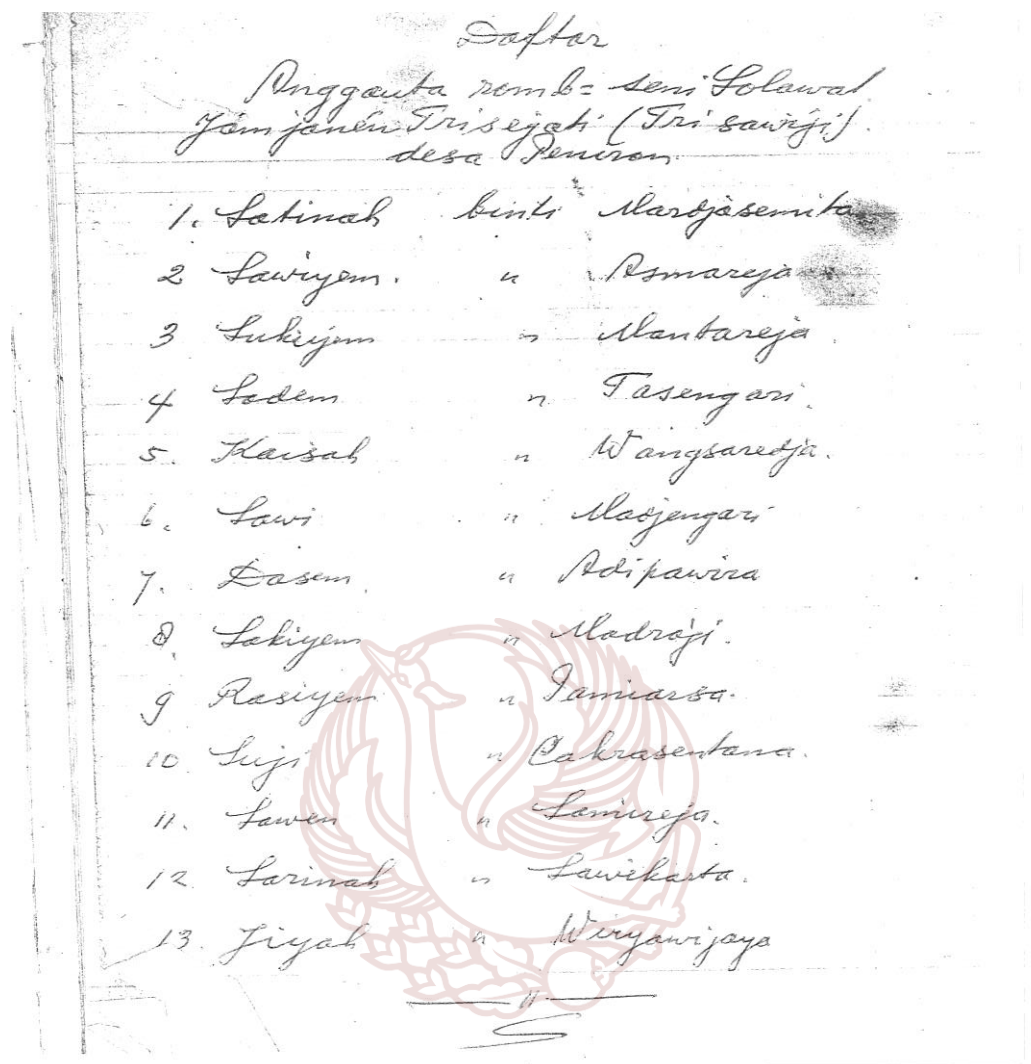 Daftar
Anggauta romb= seni Solawat
Jam janén Tri sejati (Tri sawiji)
desa Peniron
1. Satinah binti Mardjasemita
2 Sawiyem. " Asmareja
3 Sukiyem " Mantareja
4 Sodem " Tasengari
5. Kaisah " Wangsaredja.
6. Sawi " Madjengari
7. Dasem " Adipawira
8. Sakiyem " Madraji.
9 Rasiyem " Samiarsa.
10 Suji " Cakrasentana.
11. Sawen " Samireja.
12 Sarinah " Sawikarta.
13. Jiyah " Wiryawijaya